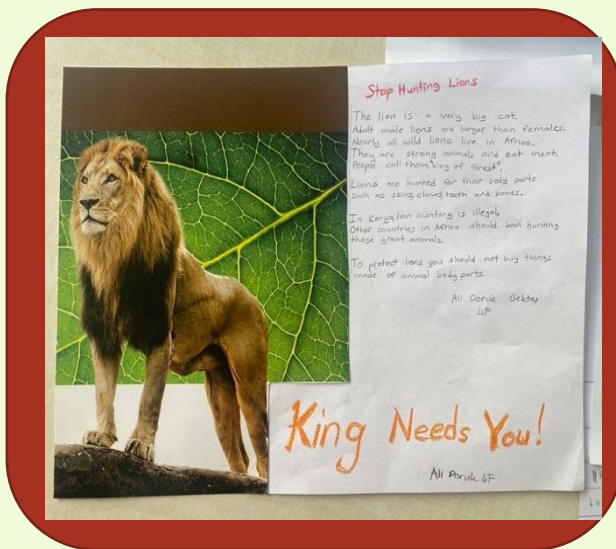 Stop Hunting Lions
The lion is a very big cat.
Adult male lions are larger than females.
Nearly all wild lions live in Africa.
They are strong animals and eat meat.
People call them "king of forest".
Lions are hunted for their body parts
such as skins, claws, teeth and bones.
In Kenya, lion hunting is illegal.
Other countries in Africa should ban hunting
those great animals.
To protect lions, you should not buy things
made of animal body parts.
Ali Doruk
4F
King Needs You!
Ali Doruk 4F